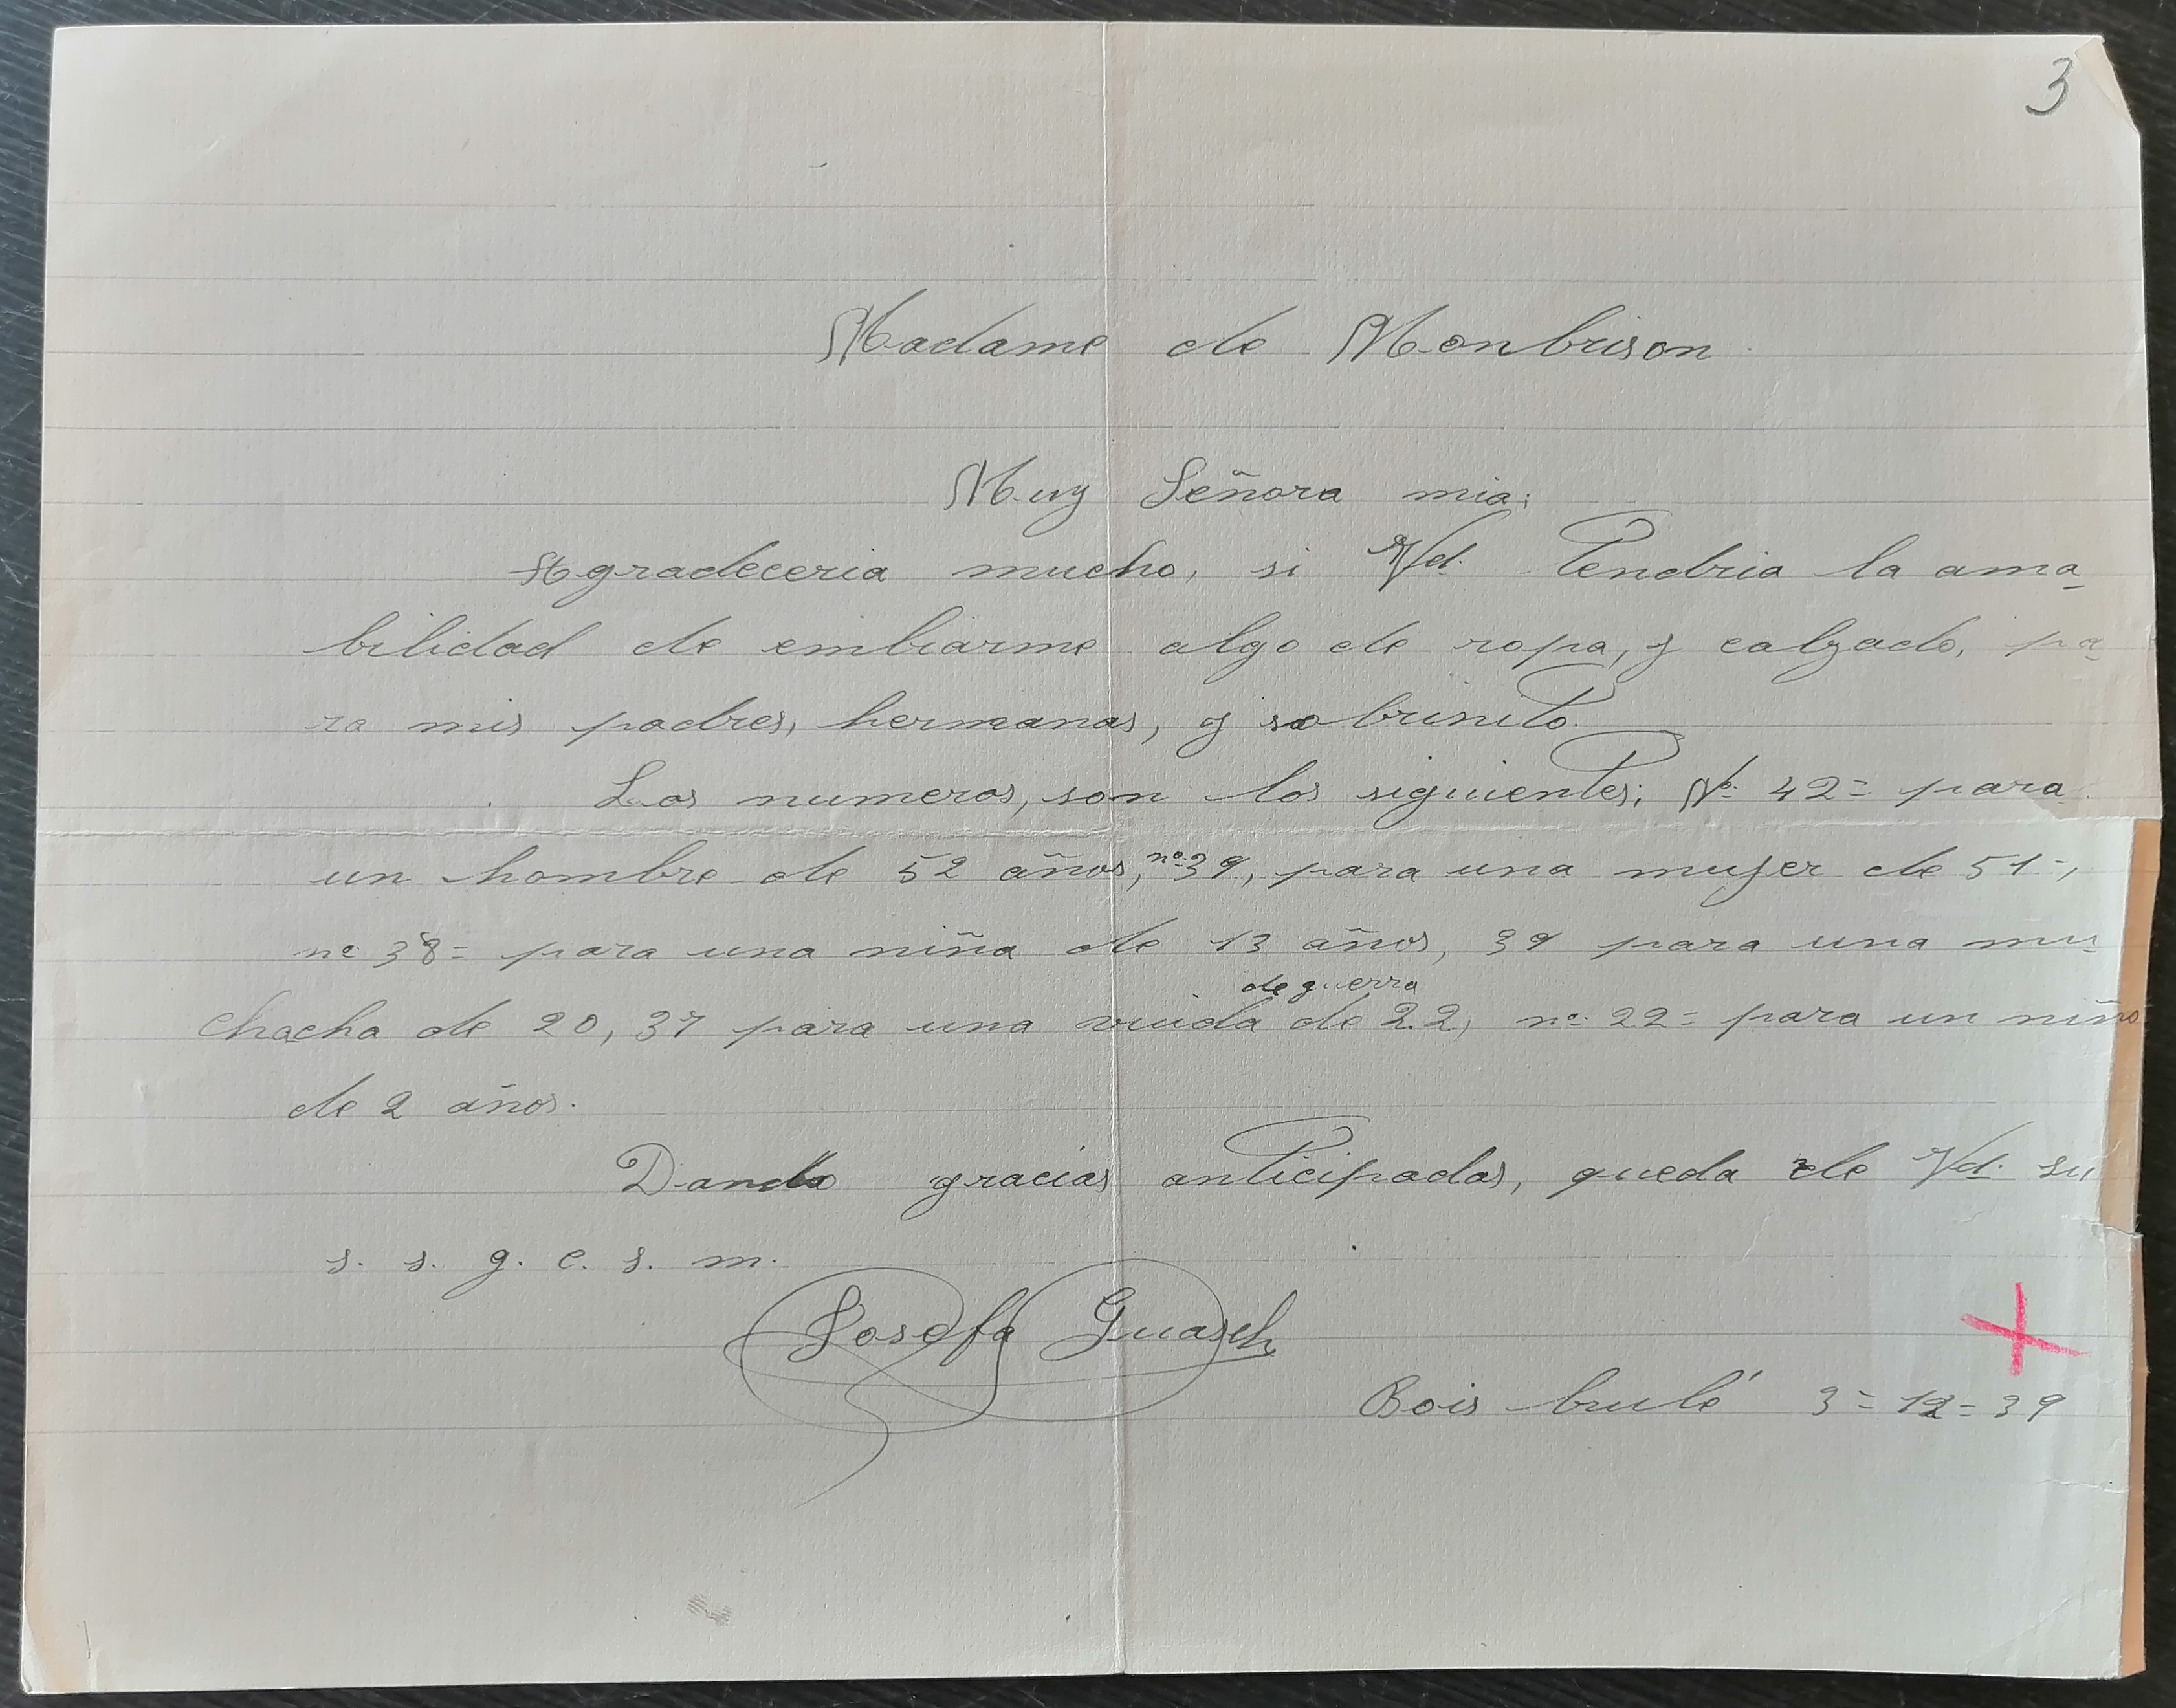 3
Madame de Monbrison
Muy Señora mia;
Agradeceria mucho, si Vd. Tendria la ama-
bilidad de embiarme algo de ropa, y calzado, pa-
ra mis padres, hermanas, y sobrinito.
Los numeros, son los siguientes; Nº 42= para
un hombre de 52 años, nº 39, para una mujer de 51=,
nº 38= para una niña de 13 años, 39 para una mu-
de guerra
chacha de 20, 37 para una viuda de 22, nº 22= para un niño
de 2 años.
Dando gracias anticipadas, queda de Vd. su
s. s. q. e. s. m.
Josefa Guasch
Bois brulé 3=12=39